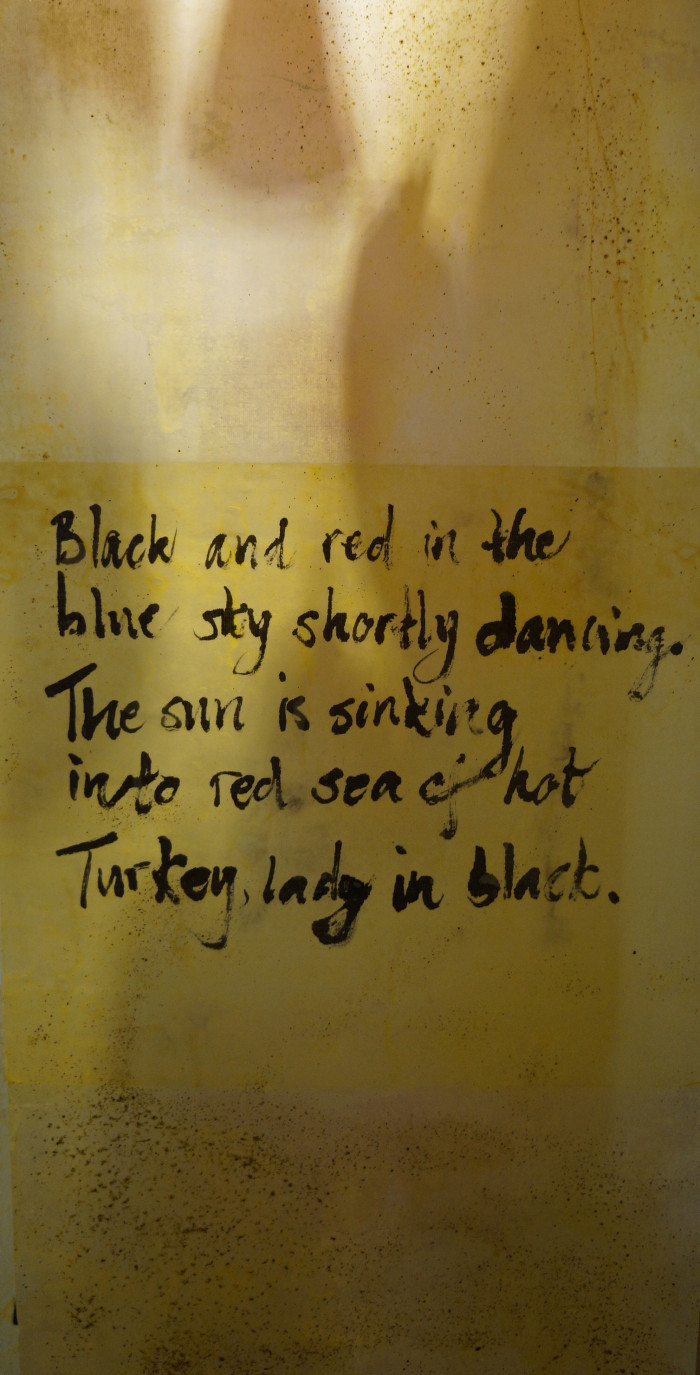 Black and red in the
blue sky shortly dancing.
The sun is sinking
into red sea of hot
Turkey, lady in black.